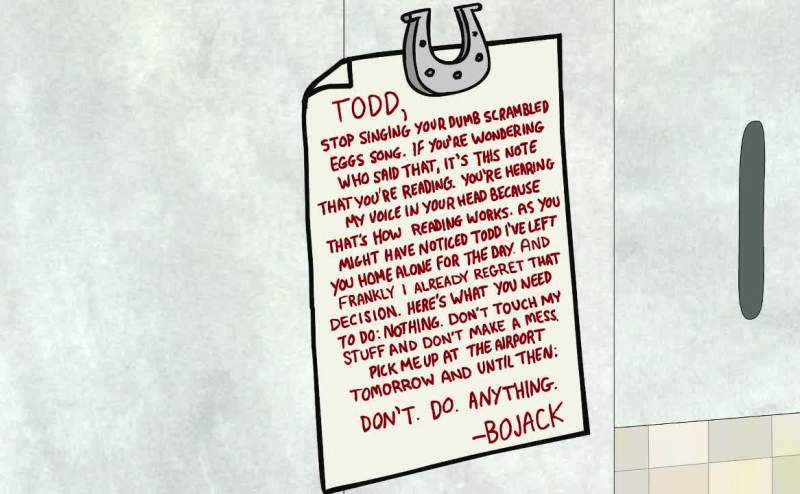 TODD,
STOP SINGING YOUR DUMB SCRAMBLED
EGGS SONG. IF YOU'RE WONDERING
WHO SAID THAT, IT'S THIS NOTE
THAT YOU'RE READING. YOU'RE HEARING
MY VOICE IN YOUR HEAD BECAUSE
THAT'S HOW READING WORKS. AS YOU
MIGHT HAVE NOTICED TODD I'VE LEFT
YOU HOME ALONE FOR THE DAY. AND
FRANKLY I ALREADY REGRET THAT
DECISION. HERE'S WHAT YOU NEED
TO DO: NOTHING. DON'T TOUCH MY
STUFF AND DON'T MAKE A MESS.
PICK ME UP AT THE AIRPORT
TOMORROW AND UNTIL THEN:
DON'T. DO. ANYTHING.
-BOJACK